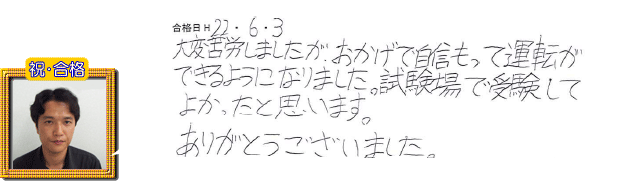 祝・合格
合格日H 22・6・3
大変苦労しましたが、おかげで自信もって運転が
できるようになりました。試験場で受験して
よかったと思います。
ありがとうございました。